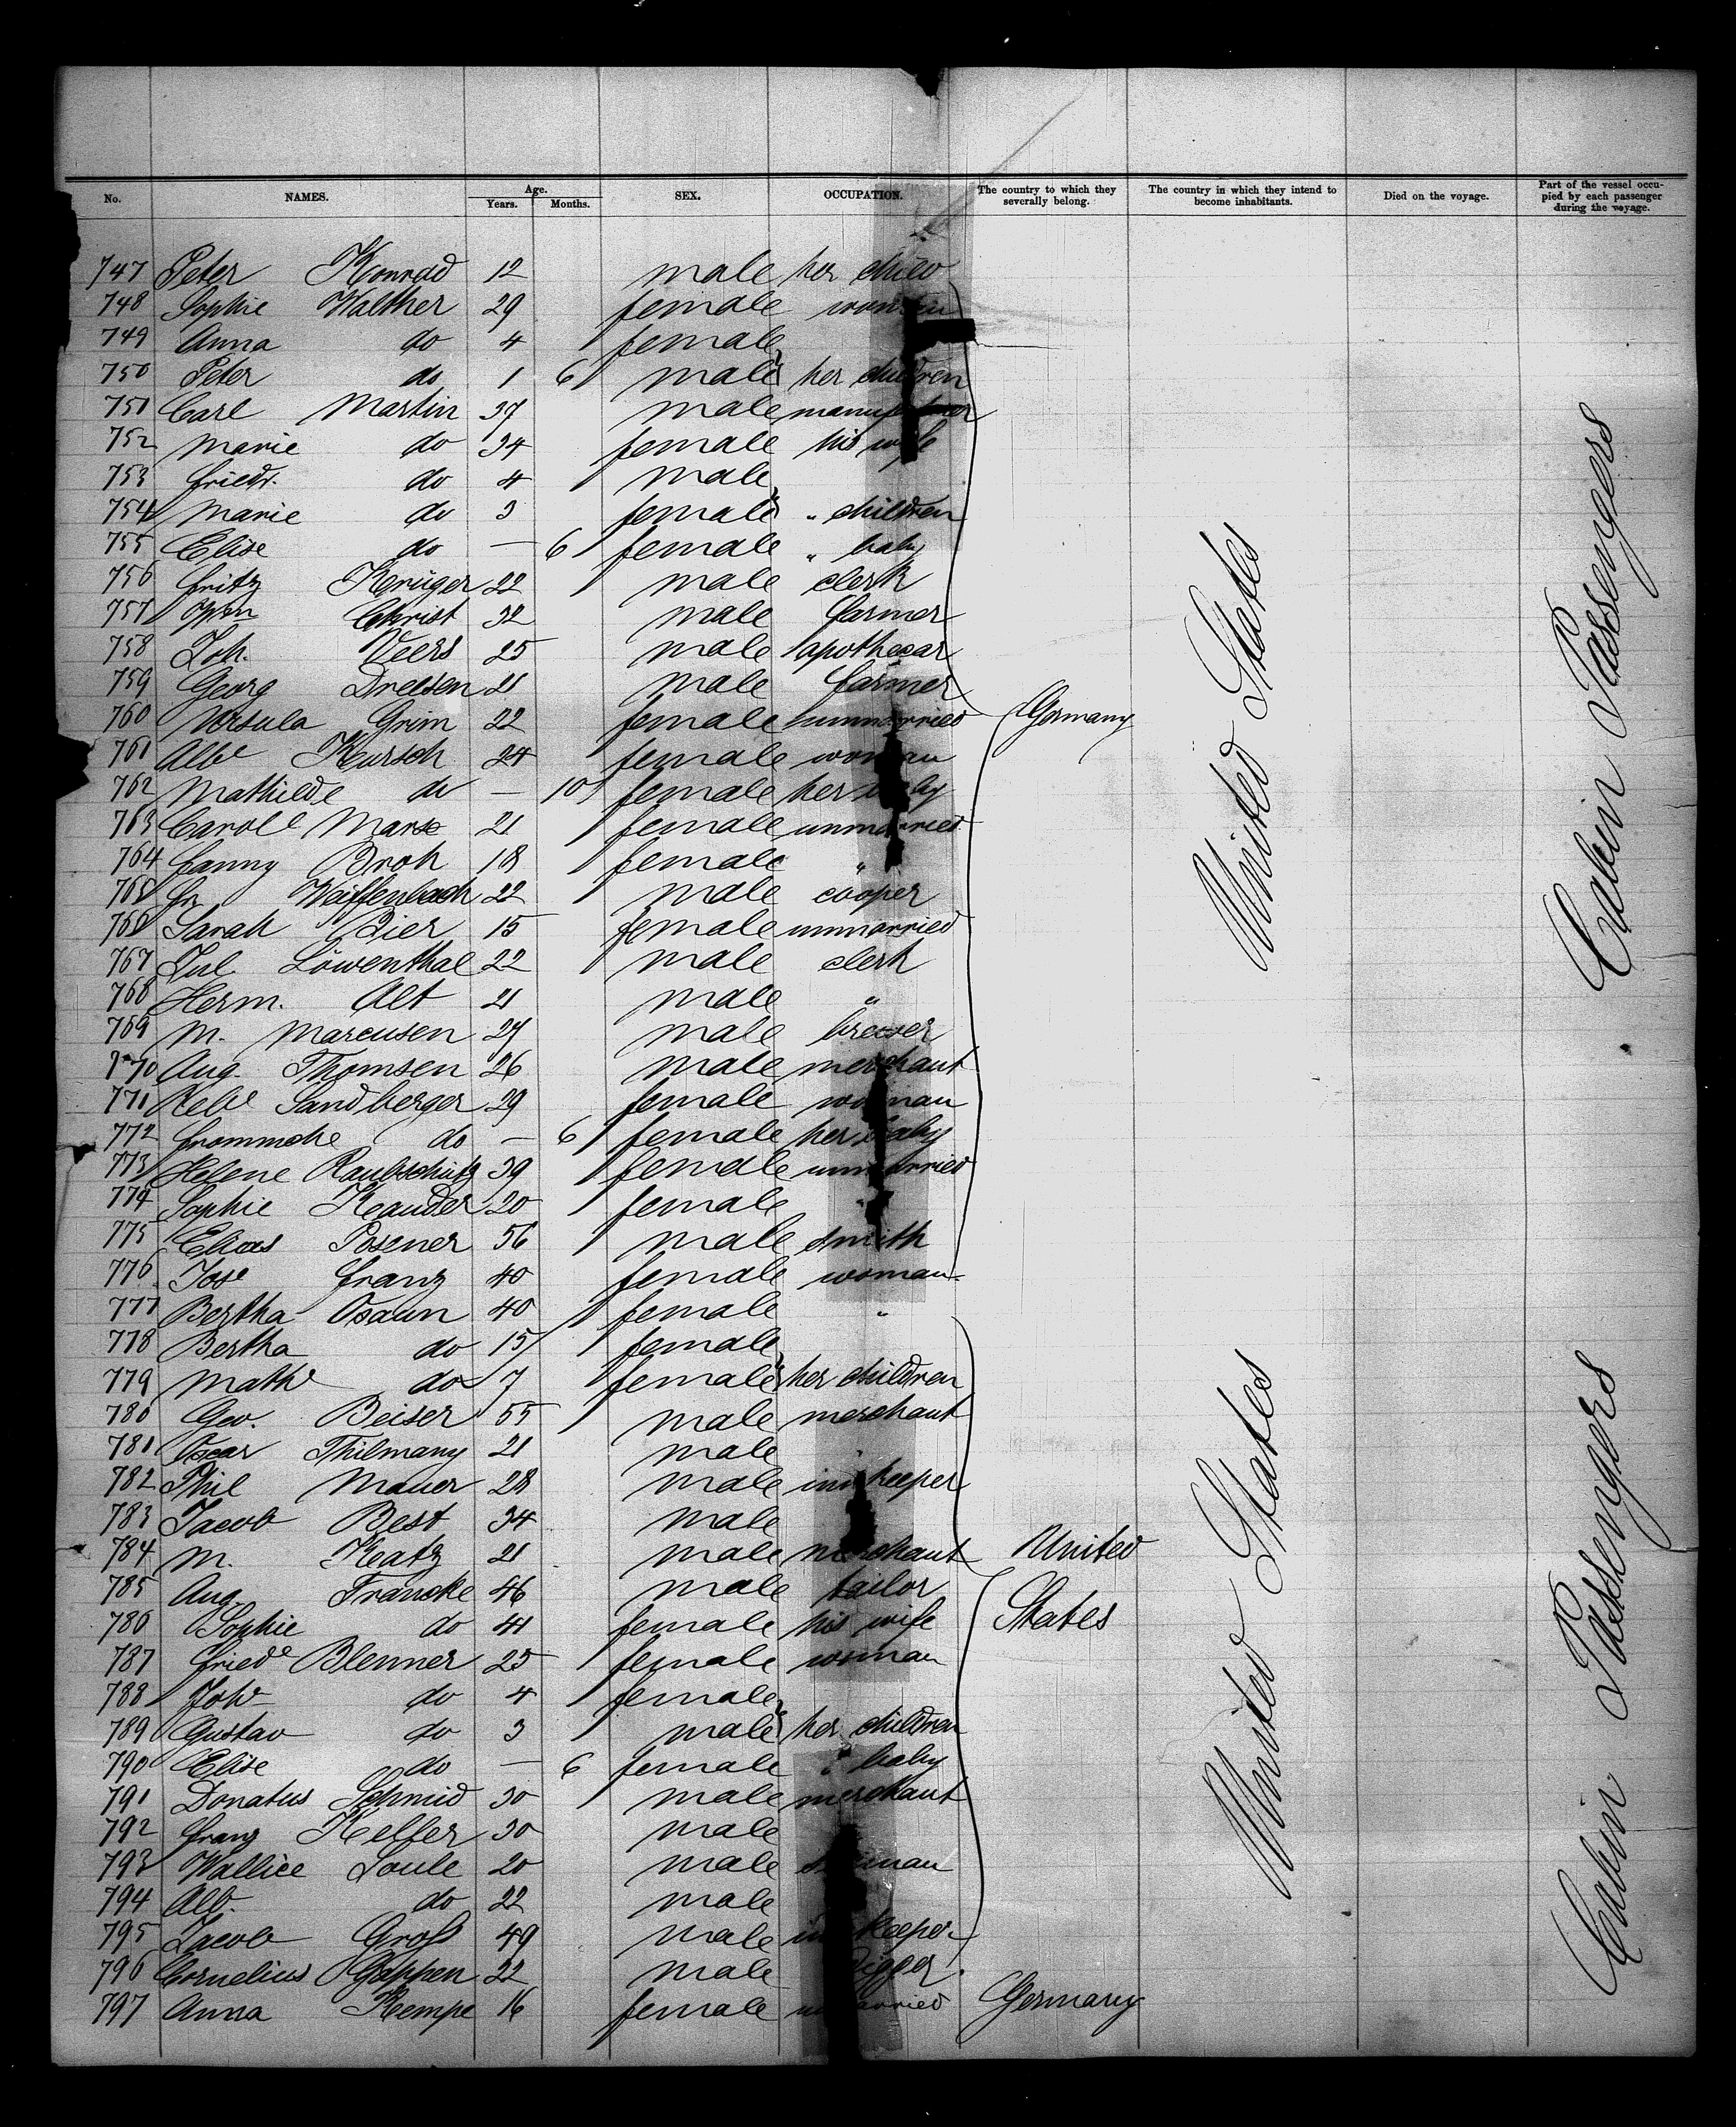 No. NAMES. Age. Years. Months. SEX. OCCUPATION. The country to which they severally belong. The country in which they intend to become inhabitants. Died on the voyage. Part of the vessel occupied by each passenger during the voyage.
747 Peter Konrad 12 male her child
748 Sophie Walther 29 female woman
749 Anna do 4 female
750 Peter do 1 6 male her children
751 Carl Martin 37 male
752 Marie do 34 female his wife
753 Friedr. do 4 male
754 Marie do 3 female " children
755 Elise do — 6 female " baby
756 Fritz Krüger 22 male clerk
757 Wm Christ 32 male farmer
758 Joh. Veers 25 male apothecar
759 Georg Dreesen 21 male farmer
760 Ursula Grim 22 female unmarried Germany
761 Albe Kursch 24 female woman
762 Mathilde do — 10 female her baby
763 Carole Marx 21 female unmarried
764 Fanny Broh 18 female "
765 Fr. Waiffenbach 22 male cooper
766 Sarah Bier 15 female unmarried
767 Jul Löwenthal 22 male clerk
768 Herm. Alt 21 male "
769 M. Marcusen 27 male brewer
770 Aug Thomsen 26 male merchant
771 Rebe Sandberger 29 female woman
772 do — 6 female her baby
773 Helene Raubschütz 39 female unmarried
774 Sophie Kauder 20 female
775 Elias Posener 56 male smith
776 Jose Franz 40 female woman
777 Bertha Osann 40 female "
778 Bertha do 15 female
779 Mathe do 7 female her children
780 Geo. Beiser 55 male merchant
781 Oscar Thilmany 21 male
782 Phil Mauer 28 male innkeeper
783 Jacob Best 34 male
784 M. Katz 21 male merchant United
785 Aug. Francke 46 male tailor
786 Sophie do 41 female his wife States
787 Friede Blenner 25 female woman
788 Johe do 4 female
789 Gustav do 3 male her children
790 Elise do — 6 female " baby
791 Donatus Schmid 30 male merchant
792 Franz Keller 30 male
793 Wallice Soule 20 male
794 Alb. do 22 male
795 Jacob Groß 49 male innkeeper
796 Cornelius Gappen 22 male
797 Anna Kempe 16 female unmarried Germany
United States
United States
Cabin Passengers
Cabin Passengers